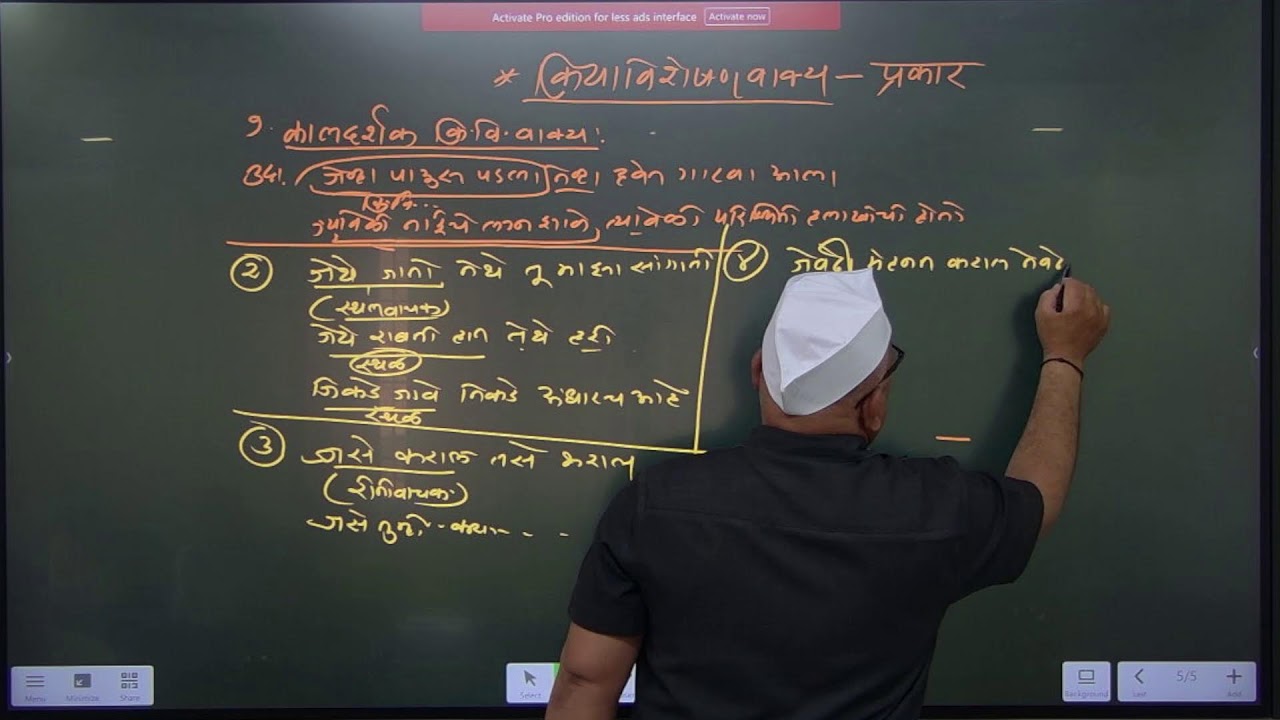 Activate Pro edition for less ads interface Activate now
* क्रियाविशेषणवाक्य – प्रकार
१. कालदर्शक क्रि.वि.वाक्य:
उदा. जेव्हा पाऊस पडला तेव्हा हवेत गारवा आला
क्रिवि...
ज्यावेळी ताईचे लग्न झाले, त्यावेळी परिस्थिती हलाखीची होती
२ जेथे जातो तेथे तू माझा सांगाती
(स्थलवाचक)
जेथे राबती हात तेथे हरी
स्थळ
जिकडे जावे तिकडे अंधारच आहे
स्थळ
३ जसे कराल तसे भराल
(रीतिवाचक)
जसे तुम्ही
४ जेवढी मेहनत कराल तेवढ
Menu Minimize Share
Select
Background
Last 5/5 Add